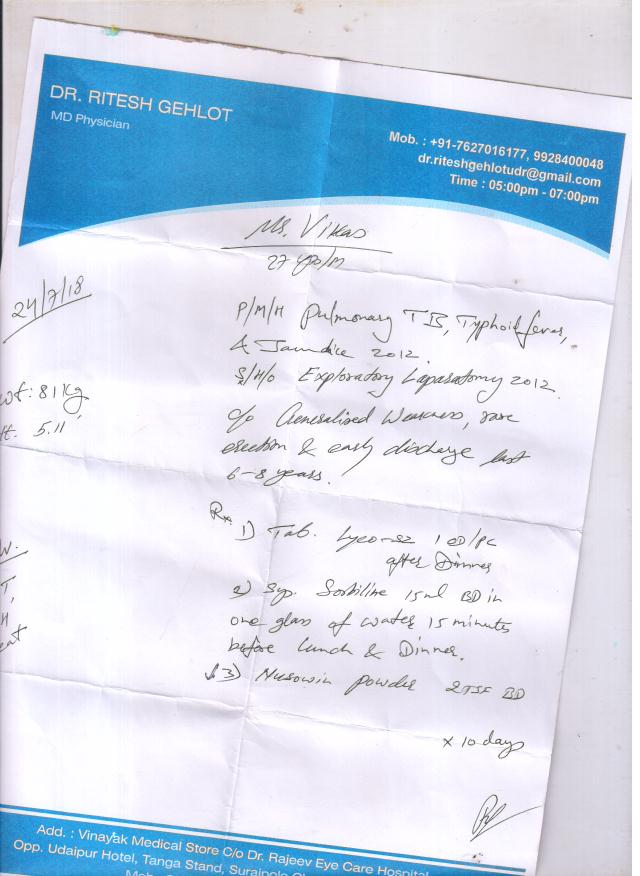 DR. RITESH GEHLOT
MD Physician
Mob. : +91-7627016177, 9928400048
dr.riteshgehlotudr@gmail.com
Time : 05:00pm - 07:00pm
Mr. Vikas
27 yrs/m
24/7/18
P/M/H Pulmonary TB, Typhoid fever,
& Jaundice 2012.
S/H/o Exploratory Laparatomy 2012.
wt: 81 Kg
Ht. 5.11
c/o Generalised Weakness, rare
erection & early discharge last
6-8 years.
Rx
1) Tab. Lyco-sz 1 OD/PC
after Dinner
2) Syp. Sorbiline 15ml BD in
one glass of water 15 minutes
before lunch & Dinner.
3) Nusowin powder 2TSF BD
x 10 days
Add. : Vinayak Medical Store C/o Dr. Rajeev Eye Care Hospital
Opp. Udaipur Hotel, Tanga Stand, Surajpole